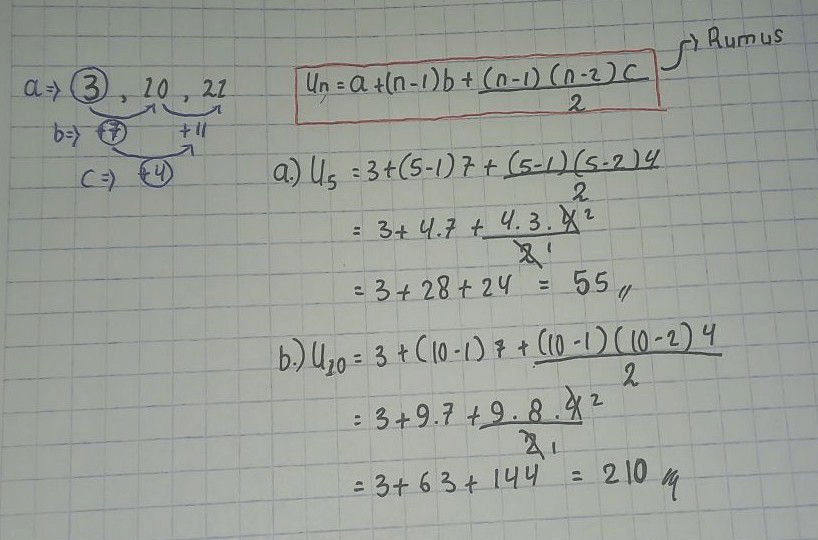 a⇒ 3, 10, 21
b⇒ +7 +11
c⇒ +4
Un = a + (n-1)b + (n-1)(n-2)c / 2 → Rumus
a.) U5 = 3 + (5-1)7 + (5-1)(5-2)4 / 2
= 3 + 4.7 + 4.3.4 2 / 2 1
= 3 + 28 + 24 = 55 //
b.) U10 = 3 + (10-1)7 + (10-1)(10-2)4 / 2
= 3 + 9.7 + 9.8.4 2 / 2 1
= 3 + 63 + 144 = 210 //